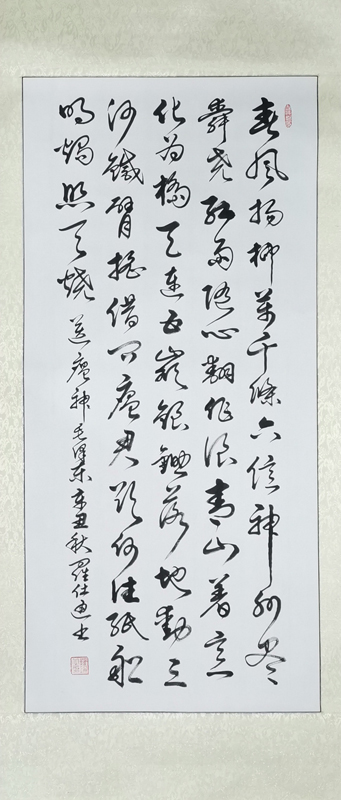 春风杨柳万千條六億神州尽
舜尧红雨随心翻作浪青山着意
化为橋天連五嶺銀鋤落地動三
河鐵臂摇借问瘟君欲何往紙船
明烛照天烧 送瘟神 毛泽东 辛丑秋 羅仕书